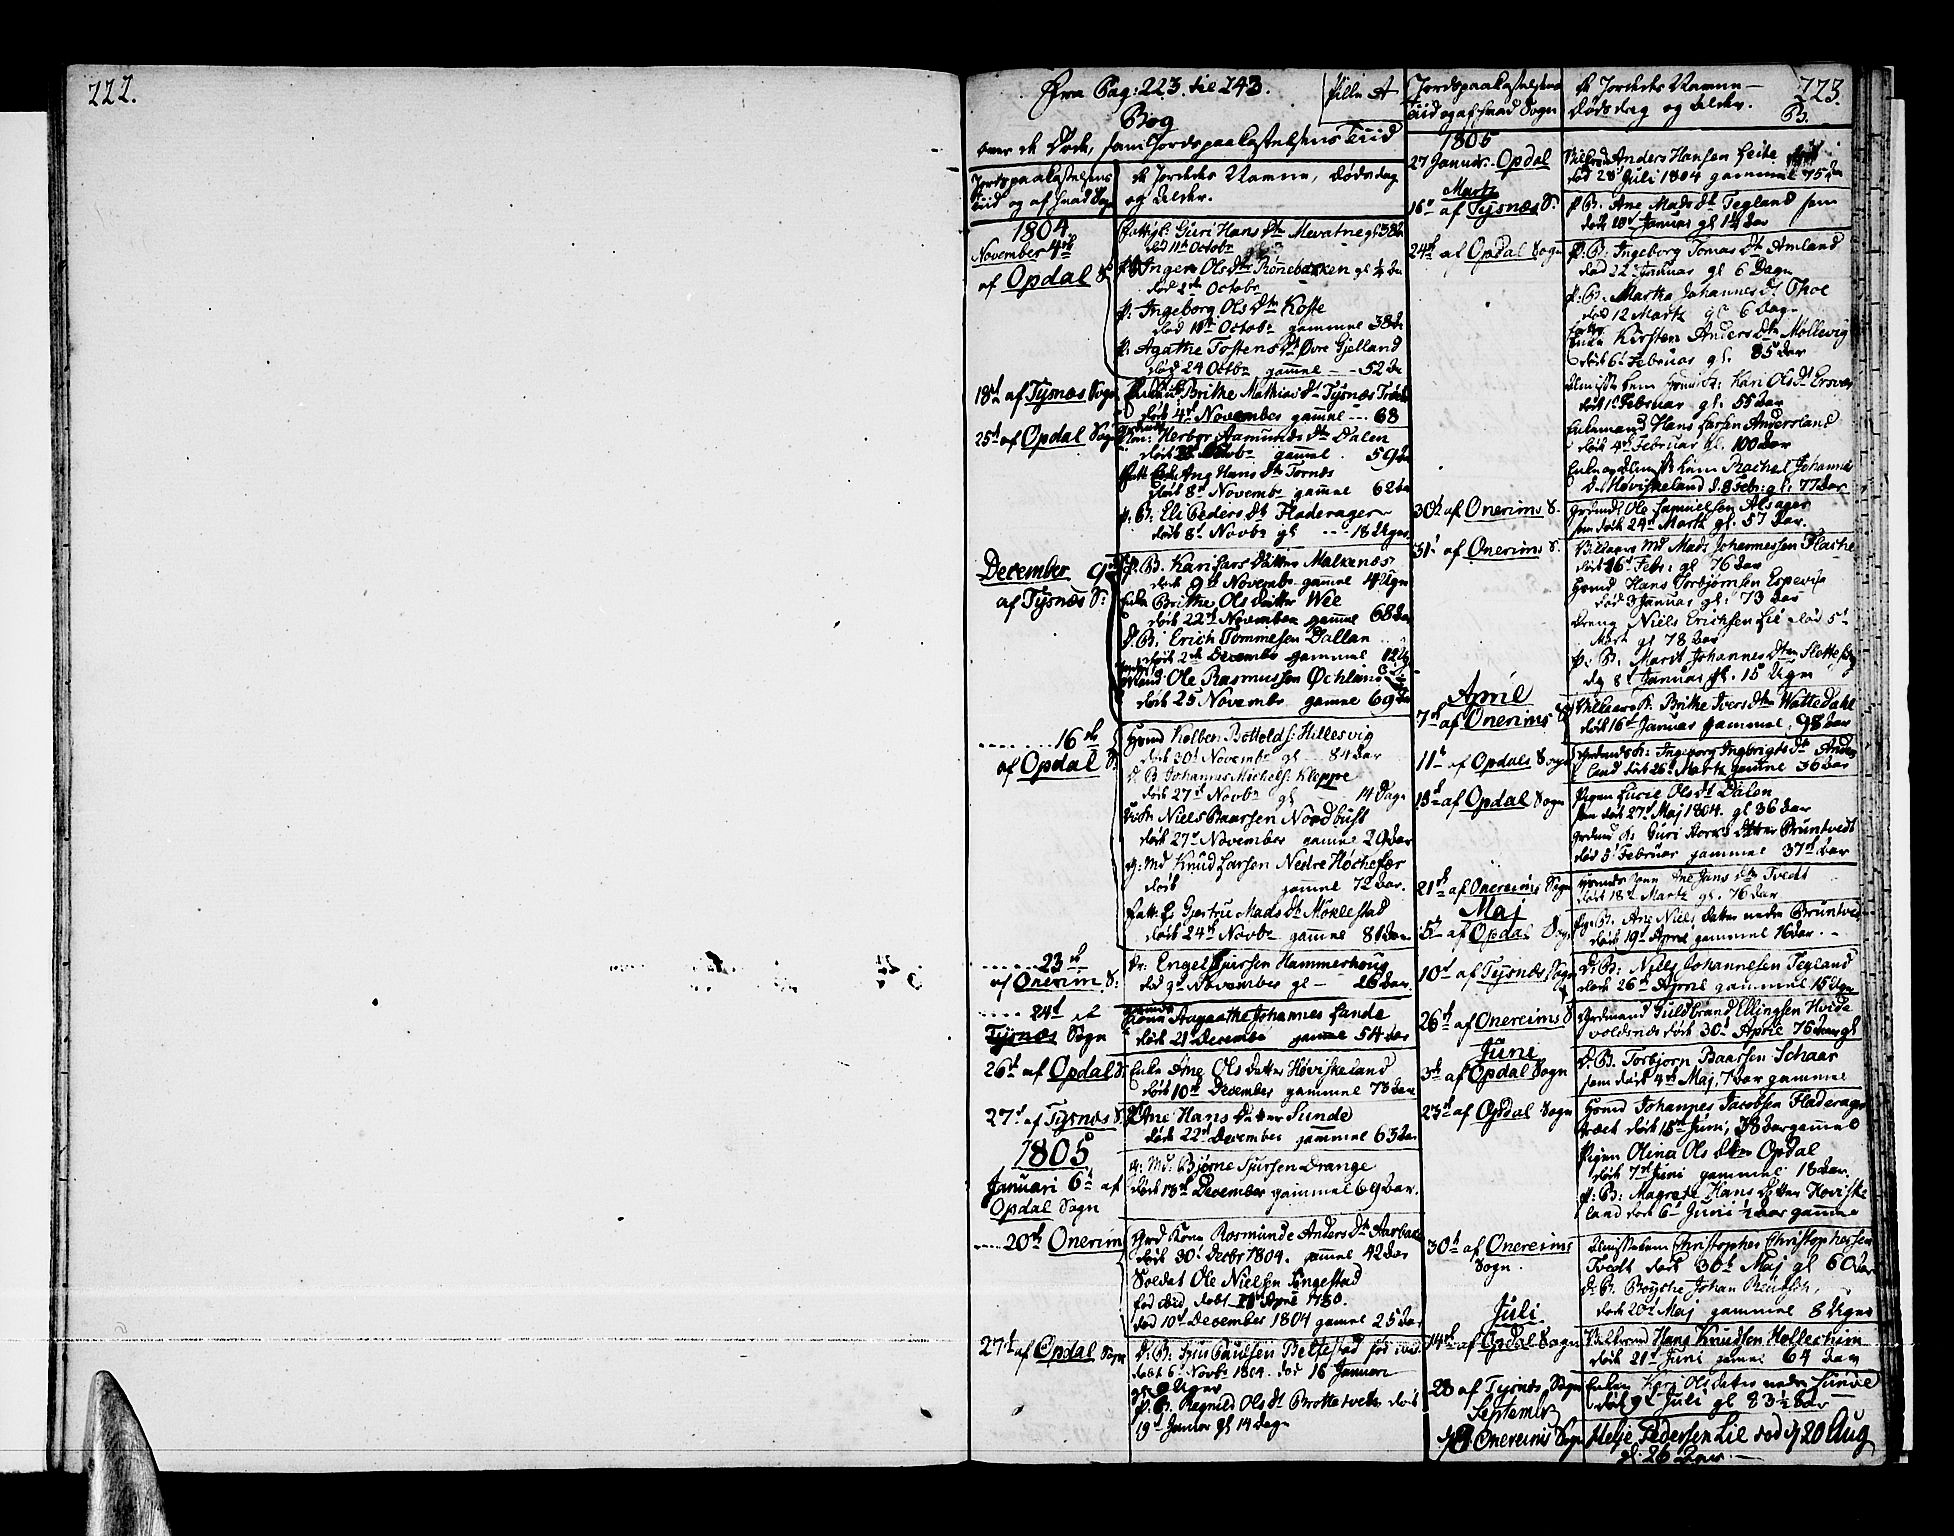 222.
Fra Pag: 223. til 243.
Bog
over de Døde, samt Jordspaakastelsens Tiid
Jordspaakastelsens
Tiid og af hvad Sogn
de Jordedes Navne, Dødsdag
og Alder.
1804
November 4de
af Opdal S.
Guri Hans Dtr
død 11te Octobr
Inger Ols Dtr
død 2de Octobr
p: Ingeborg Ols Dtr
død 11te Octobr gammel 38 Aar
p: Agathe Tostens Dtr Øvre Gjelland
død 24 Octbr gammel - - 52 Aar
18de af Tysnæs Sogn
Brithe Mathias Dtr Tysnæs
død 4de November gammel --- 68
25de af Opdal Sogn
Herbor Aamunds Dtr Dalen
gammel 59 Aar
Hans Dtr Tornæs
død 8de Novembr gammel 62 Aar
p. B. Eli Peders Dtr Fladerager
død 8de Novbr gl --- 18 Uger
December 9de
af Tysnæs S:
p. B. Kari Lars Datter Malkenæs
død 9de Novembr gammel 4 Uger
Enke Brithe Ols Datter Wee
død 22de November gammel 68 Aar
d. B. Erich Tommesen Dallan
død 2de December gammel 12 Ug
Ole Rasmussen Øchland
død 25 Novembr gammel 69 Aar
16de
af Opdal S.
Gmd Kolben Bottolds: Hillesvig
død 30te Novembr gl -- 84 Aar
d. B. Johannes Michels: Kleppe
død 27de Novbr gl --- 14 Dage
Niels Baarsen Nordhust
død 27de November gammel 29 Aar
g: Md Knud Larsen Nedre Høchefær
død gammel 72 Aar.
Gjertru Mads Dtr Møklestad
død 24de Novbr gammel 81 Aar
23de
af Onerim S:
Engel Siursen Hammerhoug
død 9de November gl - 26 Aar.
24de af
Tysnæs Sogn
Kone Aagaathe Johannes Lande
død 21 December gammel 54 Aar
26de af Opdal S.
Enke Ane Ols Datter Høviskeland
død 10de December gammel 73 Aar
27de af Tysnæs S.
Ane Hans Datter Sunde
død 22de December gammel 63 Aar
1805
Januari 6te af
Opdal Sogn
g: Md: Bjørne Sjursen Drange
død 18de December gammel 69 Aar.
20de Onerim
Grd Kone Rosmunde Anders Dtr
død 30te Decbr 1804. gammel 42 Aar
Soldat Ole Nielsen Singestad
død 10de December 1804 gammel 25 Aar
27de af Opdal Sogn
D: B: Sjur Paulsen Beltestad
døbt 6te Novbr 1804. død 16 Januari
gl 9 Uger
p. B. Regnild Ols Dtr død
19de Januar gl 14 Dage
Pille A
Jordspaakastelsens
Tiid og af hvad Sogn
de Jordedes Navne -
Dødsdag og Alder.
223.
B.
1805
27 Januar. Opdal
Anders Hansen Leite
død 28de Juli 1804 gammel 75 Aar
Martz
16de af Tysnæs S:
p. B. Ane Mads Dtr Tegland som
død 10de Januar gl 1½ Aar
24de af Opdal Sogn
p. B. Ingeborg Tomas Dtr Amland
død 22de Januar gl 6 Dage
p: B. Martha Johannes Dtr
død 12 Martz gl 6 Dage
Enke Kirsten Anders Dtr Møllevig
død 6te Februar gl. 85 Aar
Almisse Lem Kari Ols Dtr
død 1te Februar gl. 55 Aar
Enkemand Hans Larsen Andersland
død 4de Februar gl. 100 Aar
Rachel Johannes
Dtr Høviskeland d. 8 Febr: gl: 77 Aar
30te af Onerims S.
Ole Samuelsen Alsager
som død 24de Martz gl. 57 Aar.
31te af Onerims S.
Mads Johannessen Flache
død 16de Febr: gl 76 Aar
Gmd Hans Torbjørnsen Espevig
død 3 Januar gl: 73 Aar
Dreng Niels Erichsen Lie død 5te
Martz gl 78 Aar
p: B. Marit Johannes Dtr
8de Januar gl. 15 Uger
April
7de af Onerims S
Brithe Ivers Dtr Wattedahl
død 16de Januar gammel 98 Aar
11te af Opdals Sogn
Ingeborg Ingbrigts Dtr Anders
land død 26de Martz gammel 36 Aar
13de af Opdal Sogn
Pigen Lucie Ols Dtr Dalen
som død 27de Maj 1804. gl 36 Aar
Guri Datter Bruntvedt
død 5te Februar gammel 37 Aar
21de af Onereims Sogn
Ane Jans Dtr Tvedt
død 18de Martz gl. 76 Aar
Maj
5te af Opdal Sogn
pg. B. Ane Niels Datter nedre Bruntvedt
død 19de April gammel 16 Aar. -
10de af Tysnæs Sogn
D: B: Niels Johannesen Tegland
død 26de April gammel 15 Uger
26de af Onereims S
Gudbrand Ellingsen Hvide
voldsnæs død 30te April 76 Aar gl
Juni
3de af Opdal Sogn
D. B. Torbjorn Baarsen Schaar
som død 4de Maj, 7 Aar gammel
23de af Opdal Sogn
Gmd Johannes Jacobsen Fladerager
træet død 15de Juni, 38 Aar gammel
Pigen Olina Ols Dtter Opdal
død 7de Juni gammel 18 Aar.
p: B: Magrete Hans Datter Høviske
land død 6te Juni ½ Aar gammel
30te af Onereims
Sogn.
Almisselem Christopher Christophersen
Tvedt død 30te Maj gl 60 Aar
d: B: Johan
død 20de Maj gammel 8 Uger
Juli
14de af Opdal Sogn
Hans Knudsen Hollechim
død 21de Juni gammel 64 Aar
28 af Tysnæs Sogn
Enken Kari Ols datter nedre Sunde
død 9de Juli gl 83½ Aar
September
8 Onereims Sogn
Helje Pedersen Lie død d 20 Aug
gl. 26 Aar. -